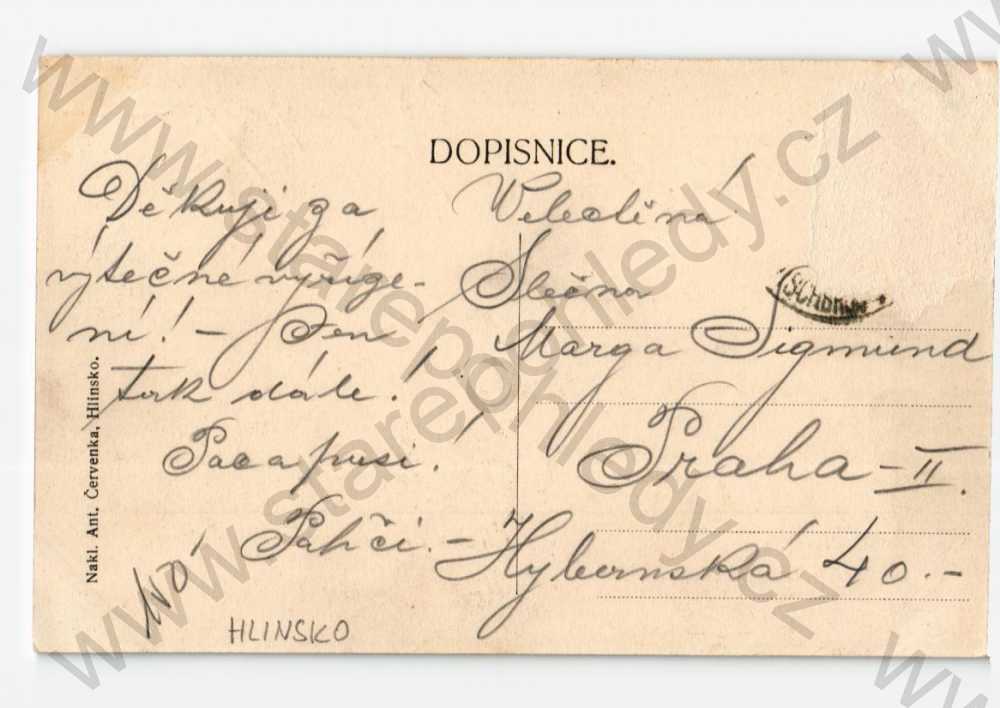 DOPISNICE.
Děkuji za
výtečné vyříze-
ní! - Jen
tak dále!
Pac a pusi.
Velectěná
Slečna
Marga Sigmund
Praha - II.
Hybernská 40.-
Nakl. Ant. Červenka, Hlinsko.
HLINSKO
www.starepohledy.cz
www.starepohledy.cz